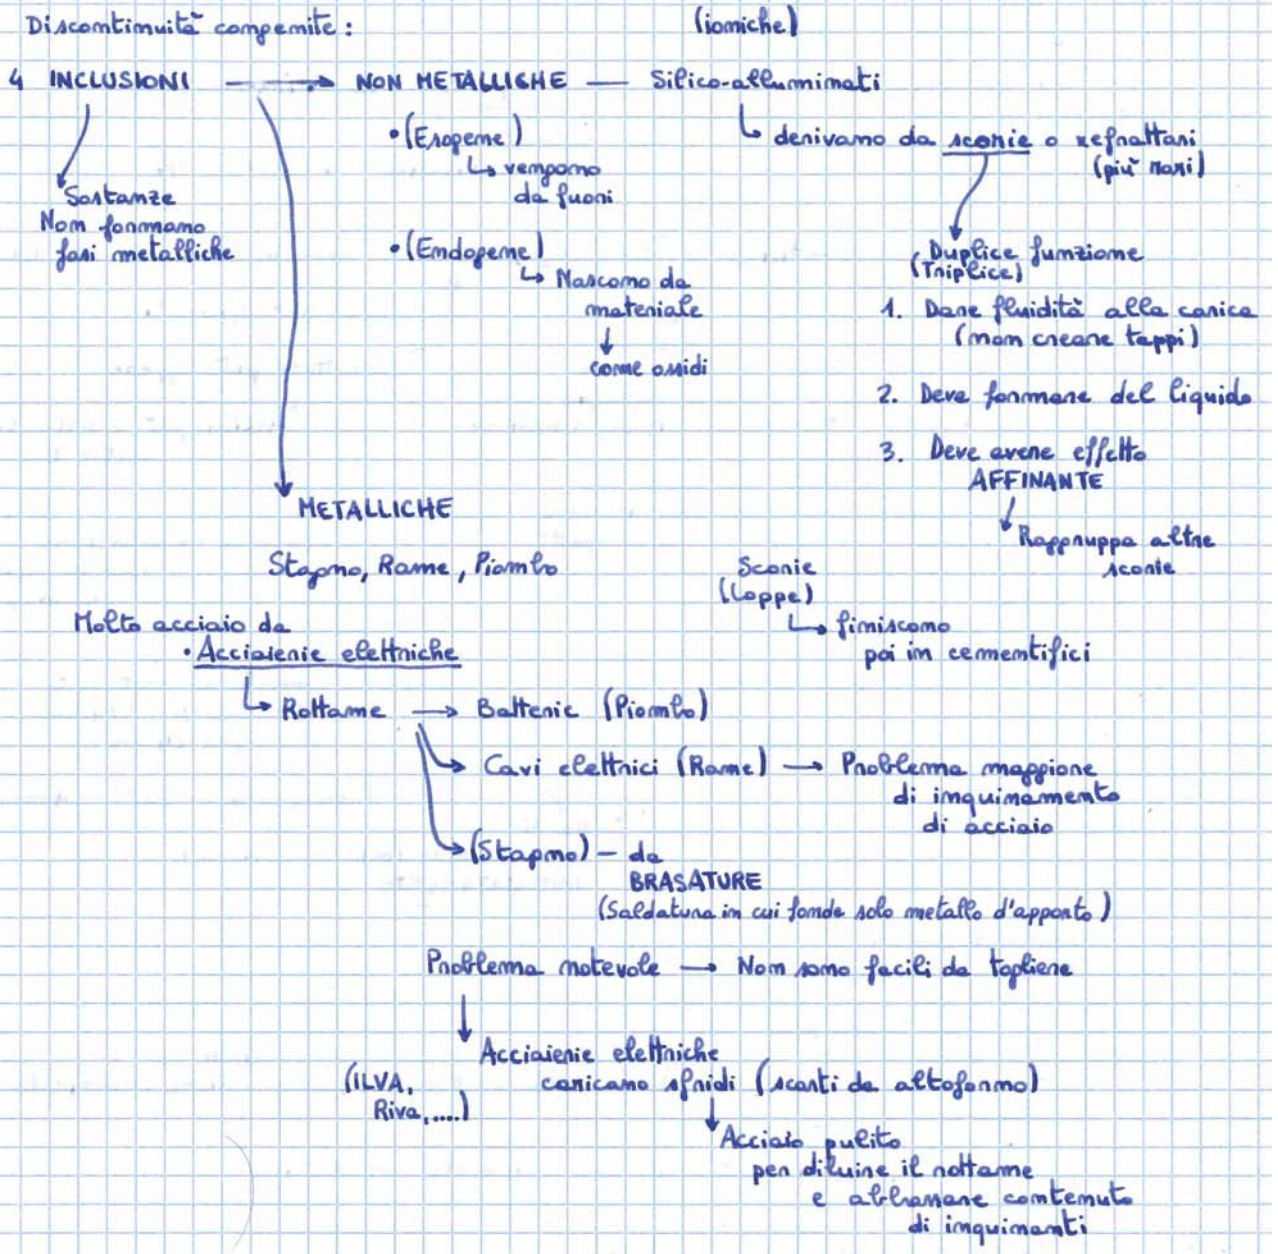 Discontinuità congenite:
(ioniche)
4 INCLUSIONI → NON METALLICHE — Silico-alluminati
• (Esogene)
↳ vengono
da fuori
↳ derivano da scorie o refrattari
(più rari)
Sostanze
Non formano
fasi metalliche
• (Endogene)
↳ Nascono da
materiale
↓
come ossidi
Duplice funzione
(Triplice)
1. Dare fluidità alla carica
(non creare tappi)
2. Deve formare del liquido
3. Deve avere effetto
AFFINANTE
Raggruppa altre
scorie
METALLICHE
Stagno, Rame, Piombo
Scorie
(Loppe)
↳ finiscono
poi in cementifici
Molto acciaio da
• Acciaierie elettriche
↳ Rottame → Batterie (Piombo)
Cavi elettrici (Rame) → Problema maggiore
di inquinamento
di acciaio
(Stagno) - da
BRASATURE
(Saldatura in cui fonde solo metallo d'apporto)
Problema notevole → Non sono facili da togliere
↓
Acciaierie elettriche
caricano sfridi (scarti da altoforno)
(ILVA,
Riva,....)
↓
Acciaio pulito
per diluire il rottame
e abbassare contenuto
di inquinanti